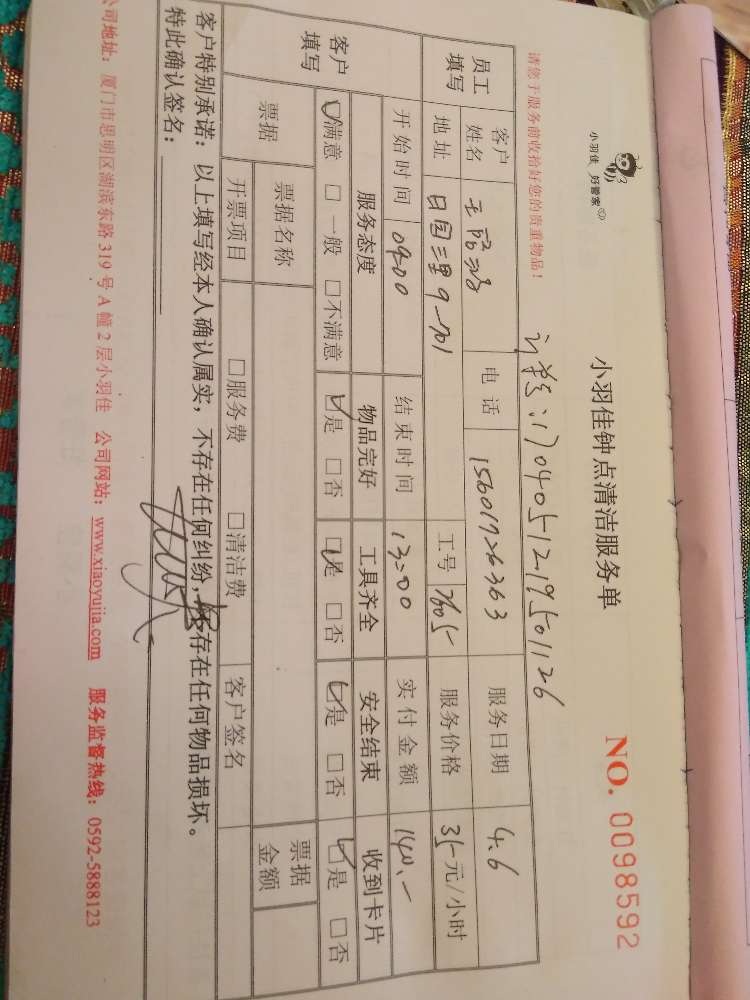 小羽佳 好管家
小羽佳钟点清洁服务单
NO. 0098592
请您于服务前收拾好您的贵重物品！
170405121950126
员工填写 客户姓名 电话 15601726363 服务日期 4.6
地址 日园三里9-701 工号 7605 服务价格 35元/小时
开始时间 09:00 结束时间 13:00 实付金额 140.-
客户填写 服务态度 物品完好 工具齐全 安全结束 收到卡片
☑满意 □一般 □不满意 ☑是 □否 ☑是 □否 ☑是 □否 ☑是 □否
票据 票据名称 票据金额
开票项目 □服务费 □清洁费 客户签名
客户特别承诺：以上填写经本人确认属实，不存在任何纠纷，不存在任何物品损坏。
特此确认签名：
公司地址：厦门市思明区湖滨东路319号A幢2层小羽佳 公司网站：www.xiaoyujia.com 服务监督热线：0592-5888123